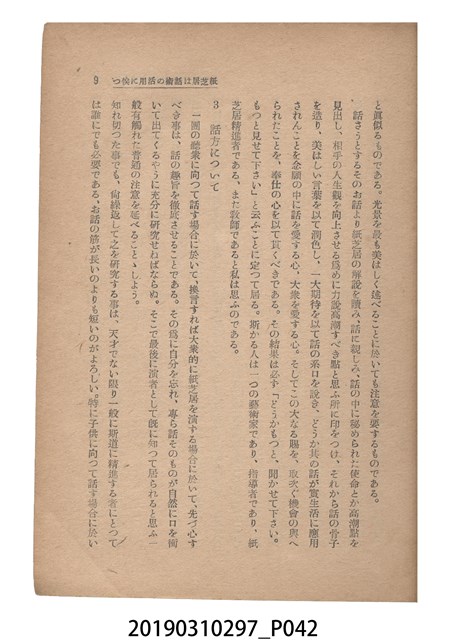 紙芝居は話術の活用に俟つ
9
と眞似るものである。光景を最も美はしく述べることに於いても注意を要するものである。
話さうとするそのお話より紙芝居の解説を讀み、話に親しみ、話の中に祕められた使命とか高潮點を
見出し、相手の人生觀を向上させる爲めに力說高潮すべき點と思ふ所に印をつけ、それから話の骨子
を造り、美はしい言葉を以て潤色し、一大期待を以て話の糸口を說き、どうか其の話が實生活に應用
されんことを念願の中に話を愛する心、大衆を愛する心。そしてこの大なる賜を、取次ぐ機會の與へ
られたことを、奉仕の心を以て貫くべきである。その結果は必ず『どうかもつと、聞かせて下さい。
もつと見せて下さい』と云ふことに定つて居る。斯かる人は一つの藝術家であり、指導者であり、紙
芝居精進者である、また敎師であると私は思ふのである。
3 話方について
一團の聽衆に向つて話す場合に於いて、換言すれば大衆的に紙芝居を演ずる場合に於いて、先づ心す
べき事は、話の趣旨を徹底させることである。その爲に自分を忘れ、專ら話そのものが自然に口を衝
いて出てくるやうに充分に研究せねばならぬ。そこで最後に演者として旣に知つて居られると思ふ一
般有觸れた普通の注意を延べることゝしよう。
知れ切つた事でも、尙繰返して之を研究する事は、天才でない限り一般に斯道に精進する者にとつて
は誰にでも必要である、お話の筋が長いのよりも短いのがよろしい。特に子供に向つて話す場合に於い
20190310297_P042